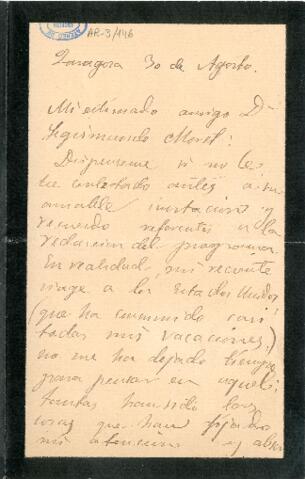 AR-3/446
Zaragoza 30 de Agosto.
Mi estimado amigo Dn
Segismundo Moret:
Dispénseme si no le
he contestado antes a su
amable invitacion y
recuerdo referentes a la
redaccion del programa.
En realidad, mi reciente
viage a los Estados Unidos
(que ha consumido casi
todas mis vacaciones)
no me ha dejado tiempo
para pensar en aquel:
tantas han sido las
cosas que han fijado
mi atencion y absor